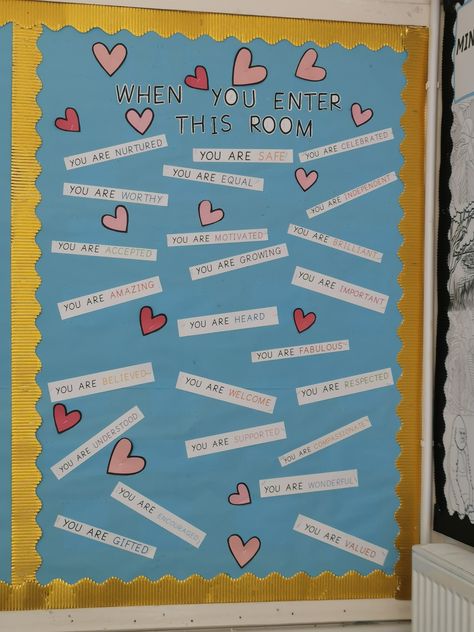 WHEN YOU ENTER
THIS ROOM
YOU ARE NURTURED
YOU ARE SAFE
YOU ARE CELEBRATED
YOU ARE EQUAL
YOU ARE WORTHY
YOU ARE INDEPENDENT
YOU ARE ACCEPTED
YOU ARE MOTIVATED
YOU ARE BRILLIANT
YOU ARE GROWING
YOU ARE AMAZING
YOU ARE IMPORTANT
YOU ARE HEARD
YOU ARE FABULOUS
YOU ARE BELIEVED
YOU ARE WELCOME
YOU ARE RESPECTED
YOU ARE UNDERSTOOD
YOU ARE SUPPORTED
YOU ARE COMPASSIONATE
YOU ARE WONDERFUL
YOU ARE ENCOURAGED
YOU ARE GIFTED
YOU ARE VALUED
MIN